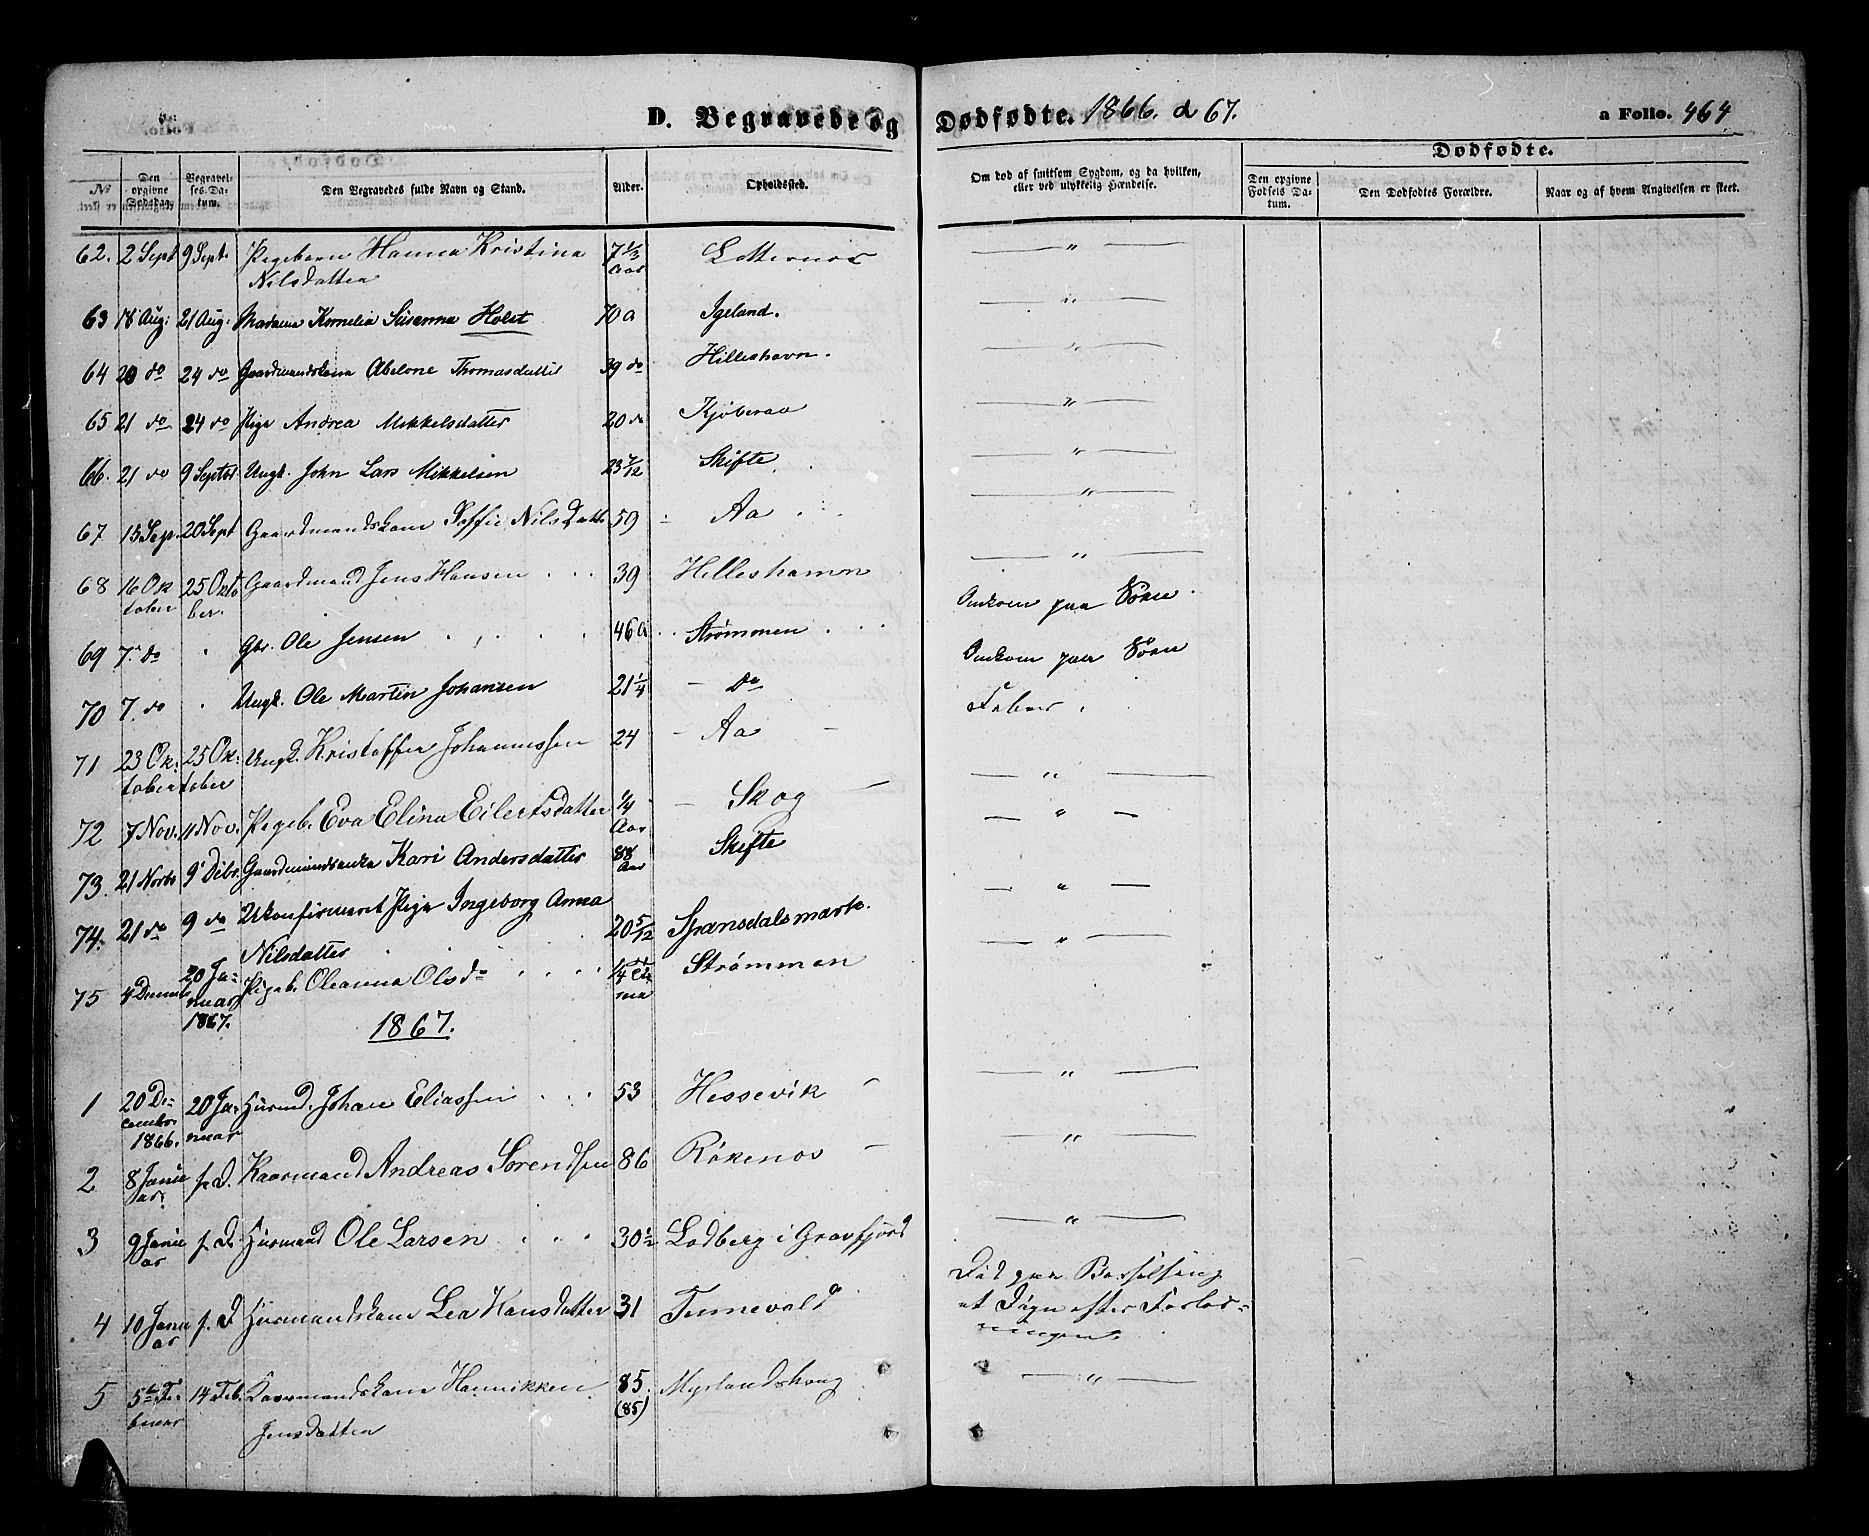 D. Begravede og Dødfødte. 1866. & 67. a Folio. 464
No Den opgivne Dødsdag. Begravelses-Datum. Den Begravedes fulde Navn og Stand. Alder. Opholdssted. Om død af smitsom Sygdom, og da hvilken, eller ved ulykkelig Hændelse. Dødfødte.
Den opgivne Fødsels Datum. Den Dødfødtes Forældre. Naar og af hvem Angivelsen er skeet.
62. 2 Sept 9 Sept. Pigebarn Hanna Kristina 7 1/3 "
Nilsdatter Aar
63 18 Aug: 21 Aug. Madame Kornelia Susanna Holst 70 a Igeland. "
64 20 do 24 do Gaardmandskone Abelone Thomasdatter 39 do Hilleshavn. "
65 21 do 24 do Pige Andrea Mikkelsdatter 20 do "
66. 21 do 9 Septbr Ungk. John Lars Mikkelsen 23 7/12 Skifte "
67 13 Sep. 20 Sept Gaardmandskone Soffie Nilsdatte 59 Aa "
68 16 Ok 25 Okto Gaardmand Jens Hansen 39 Hilleshamn "
tober ber.
69 7. do " Gbr. Ole Jensen 46 a Strømmen Omkom paa Søen.
70 7. do " Ungk. Ole Martin Johansen 21 1/4 do Omkom paa Søen
71 23 Ok: 25 Ok: Ungk. Kristoffer Johannessen 24 Aa Feber.
tober tober
72 7 Nov. 11 Nov. Pigeb. Eva Elina Eilertsdatter 1/4 Skog "
Aar
73. 21 Novbr 9 Debr. Kari Andersdatter 88 Skifte "
Aar
74. 21 do 9 do Ukonfirmeret Pige Ingeborg Anna 20 5/12 Spansdalsmark. "
Nilsdatter
75 4 Decemb 20 Ja- Pigeb. Oleanna Olsd. 1/4 Strømmen "
nuar
1867.
1867.
1 20 De- 20 Ja- Husmd. Johan Eliassen 53 Hessevik "
cembr nuar
1866.
2 8 Janu f. D. Kaarmand Andreas Sørendsen 86 Røkenes "
ar.
3 9 Janu f. D. Husmand Ole Larsen 30 1/2 Lodberg i Gravfjord "
ar
4 10 Janu f. D Husmandskone Lea Hansdatter 31 Tennevold Død paa Barselseng
ar et Døgn efter Forløs-
ningen.
5 5te Fe- 14 Feb. Kaarmandskone Hennikken 85. Myrlandshaug "
bruar Jensdatter (85)